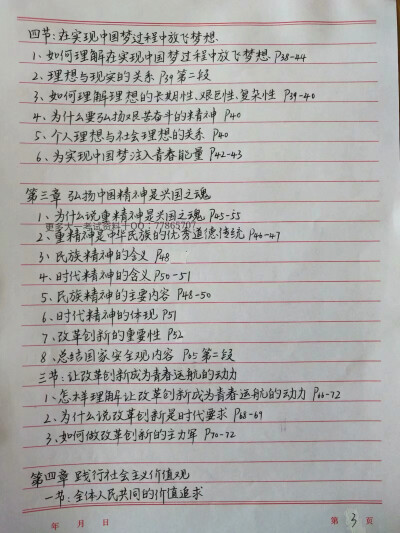 四节:在实现中国梦过程中放飞梦想
1、如何理解在实现中国梦过程中放飞梦想 P38-44
2、理想与现实的关系 P39第二段
3、如何理解理想的长期性、艰巨性、复杂性 P39-40
4、为什么要弘扬艰苦奋斗的精神 P40
5、个人理想与社会理想的关系 P40
6、为实现中国梦注入青春能量 P42-43
第三章 弘扬中国精神是兴国之魂
1、为什么说重精神是兴国之魂 P45-55
2、重精神是中华民族的优秀道德传统 P46-47
3、民族精神的含义 P48
4、时代精神的含义 P50-51
5、民族精神的主要内容 P48-50
6、时代精神的体现 P51
7、改革创新的重要性 P52
8、总结国家安全观内容 P65第二段
三节:让改革创新成为青春远航的动力
1、怎样理解让改革创新成为青春远航的动力 P66-72
2、为什么说改革创新是时代要求 P68-69
3、如何做改革创新的主力军 P70-72
第四章 践行社会主义价值观
一节:全体人民共同的价值追求
年 月 日 第 3 页